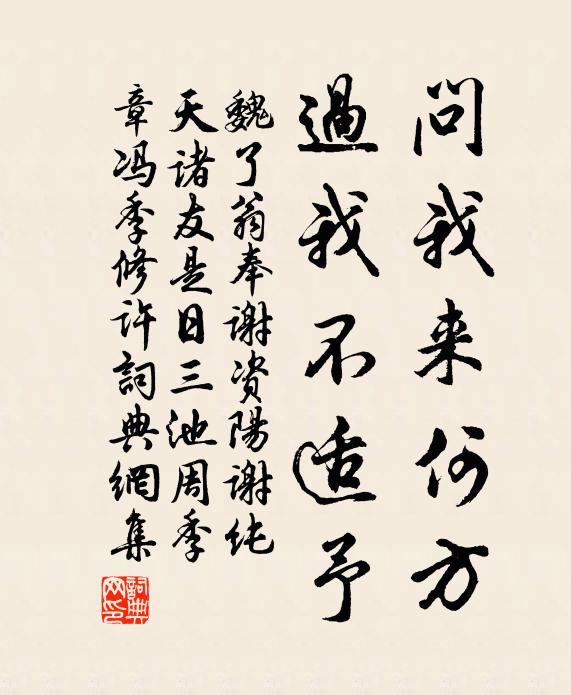 问我来何方
過我不适予
魏了翁奉谢资陽谢纯
天诸友是日三池周季
章冯季修许詞典網集
詞典網印